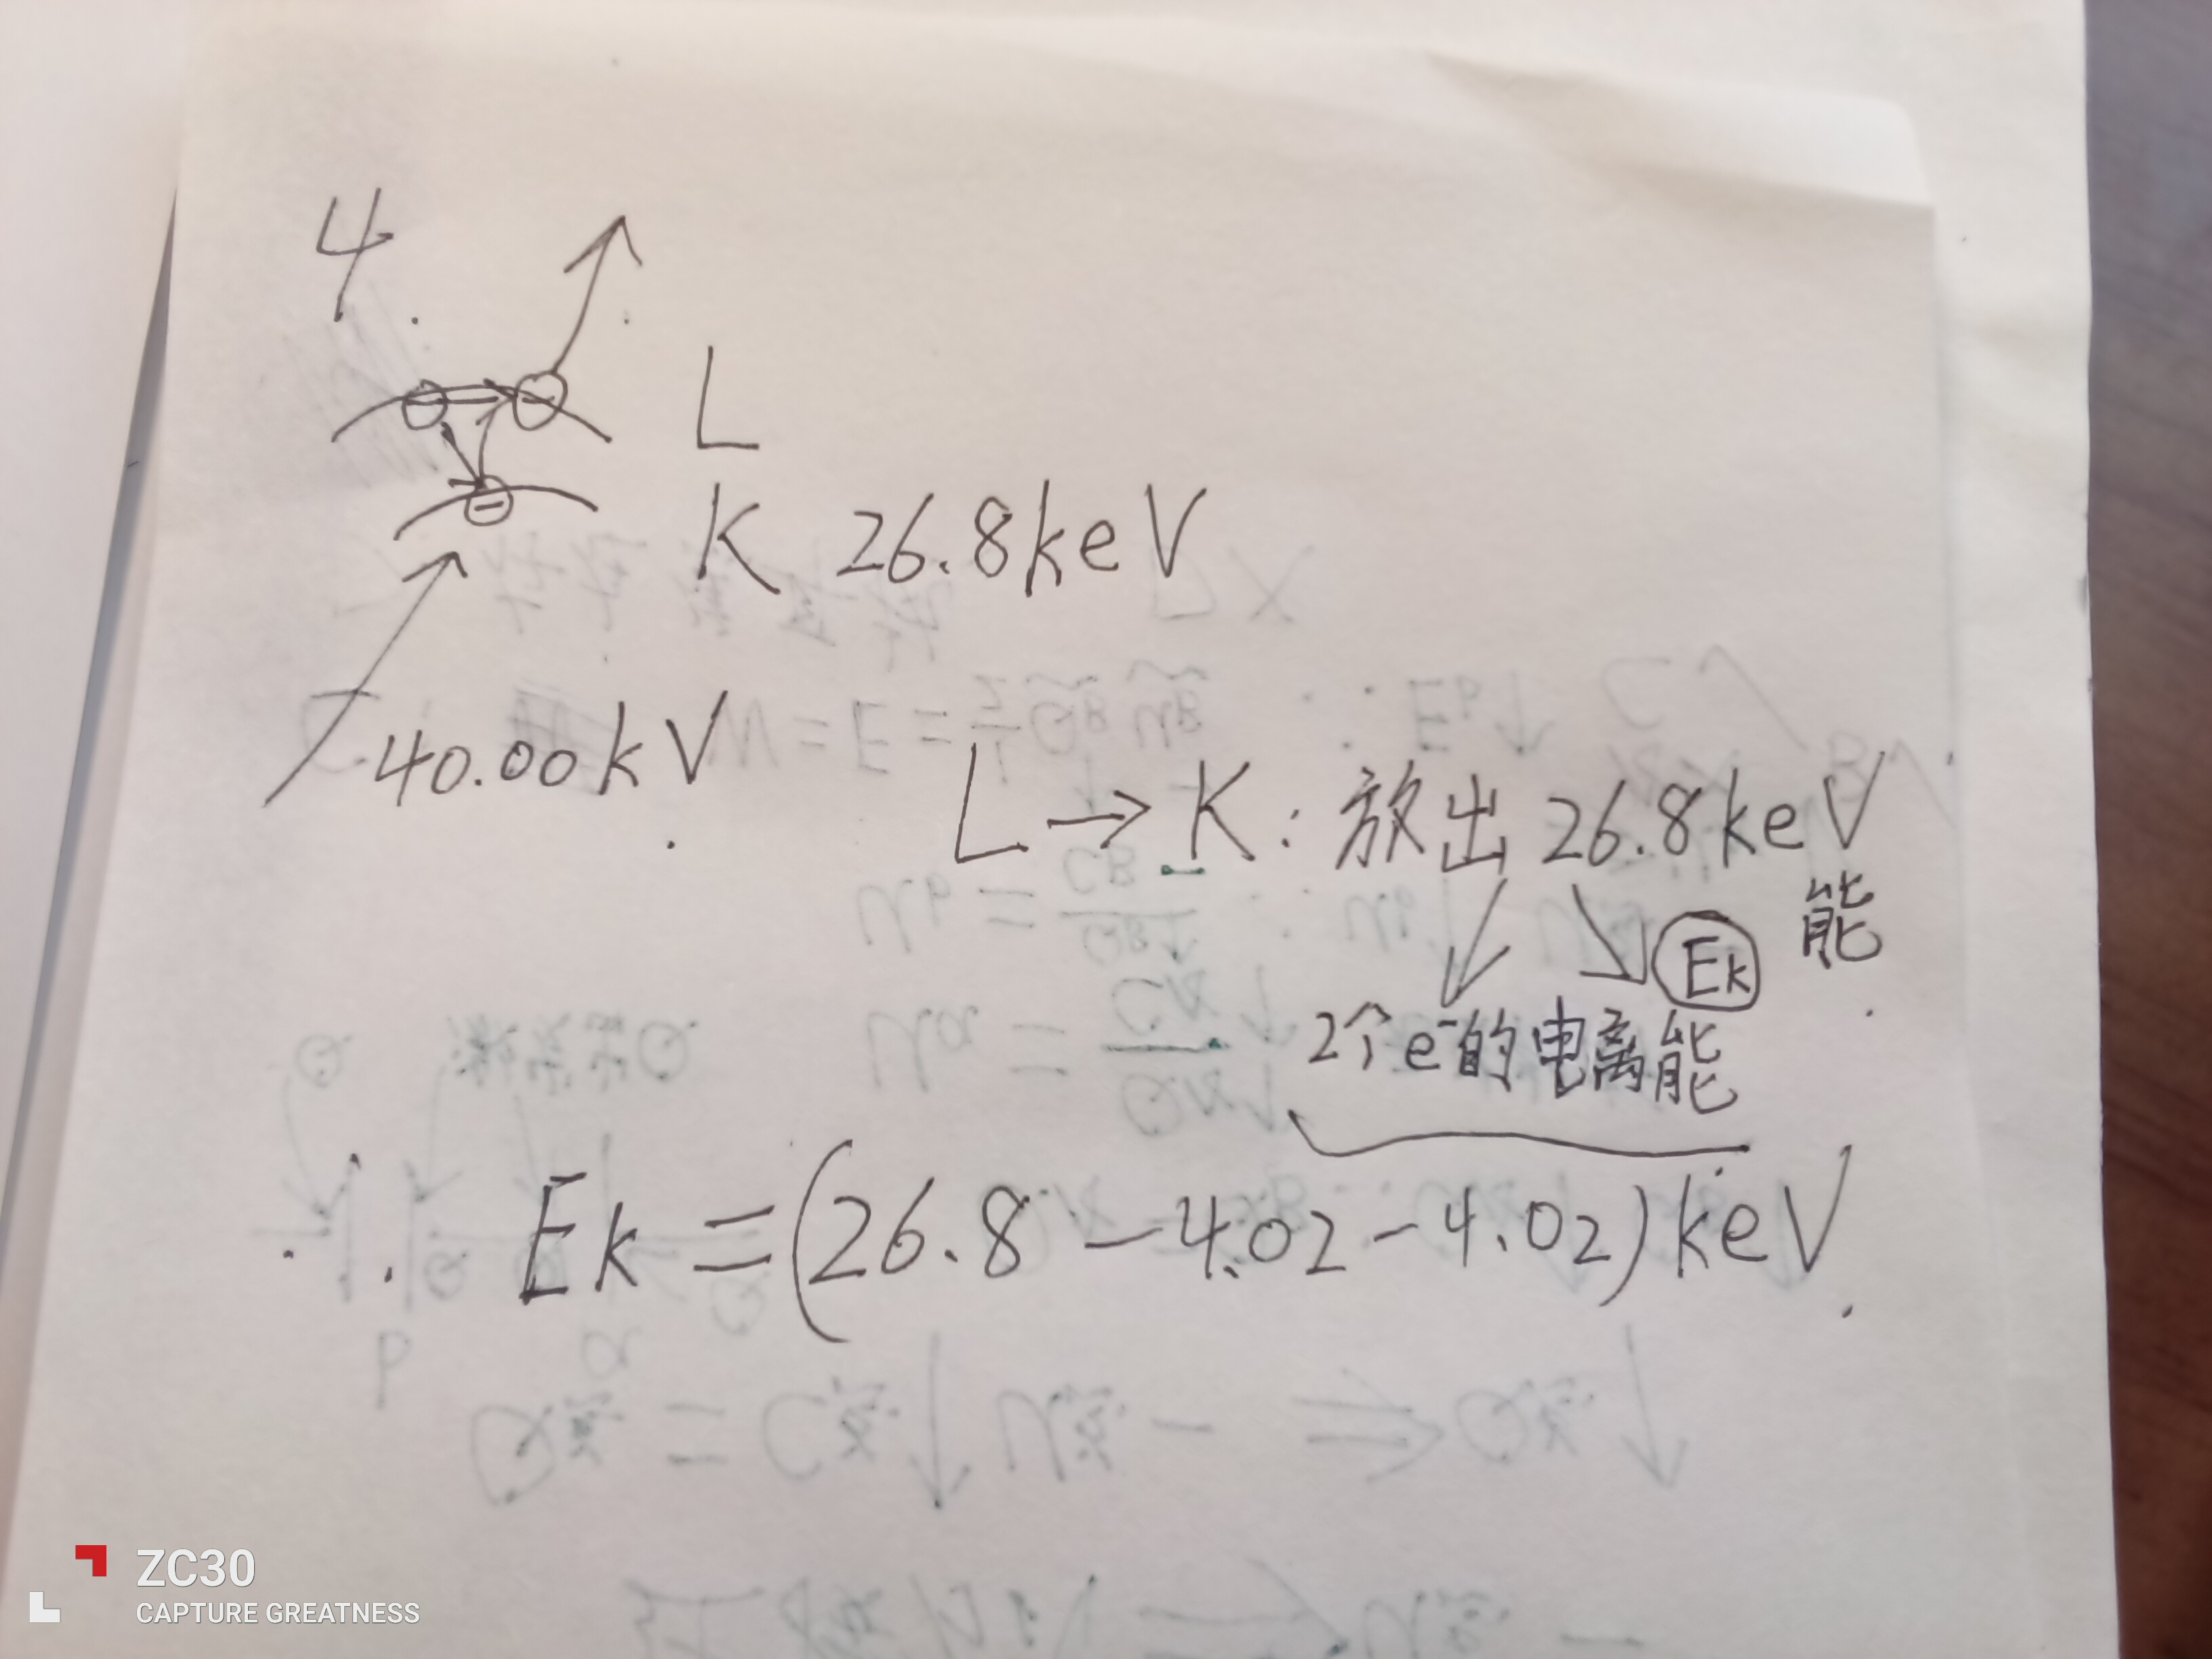 4.
L
K 26.8keV
40.00kV
L→K: 放出 26.8keV
能
Ek
2个e⁻的电离能
∴ Ek=(26.8-4.02-4.02)keV.
ZC30
CAPTURE GREATNESS